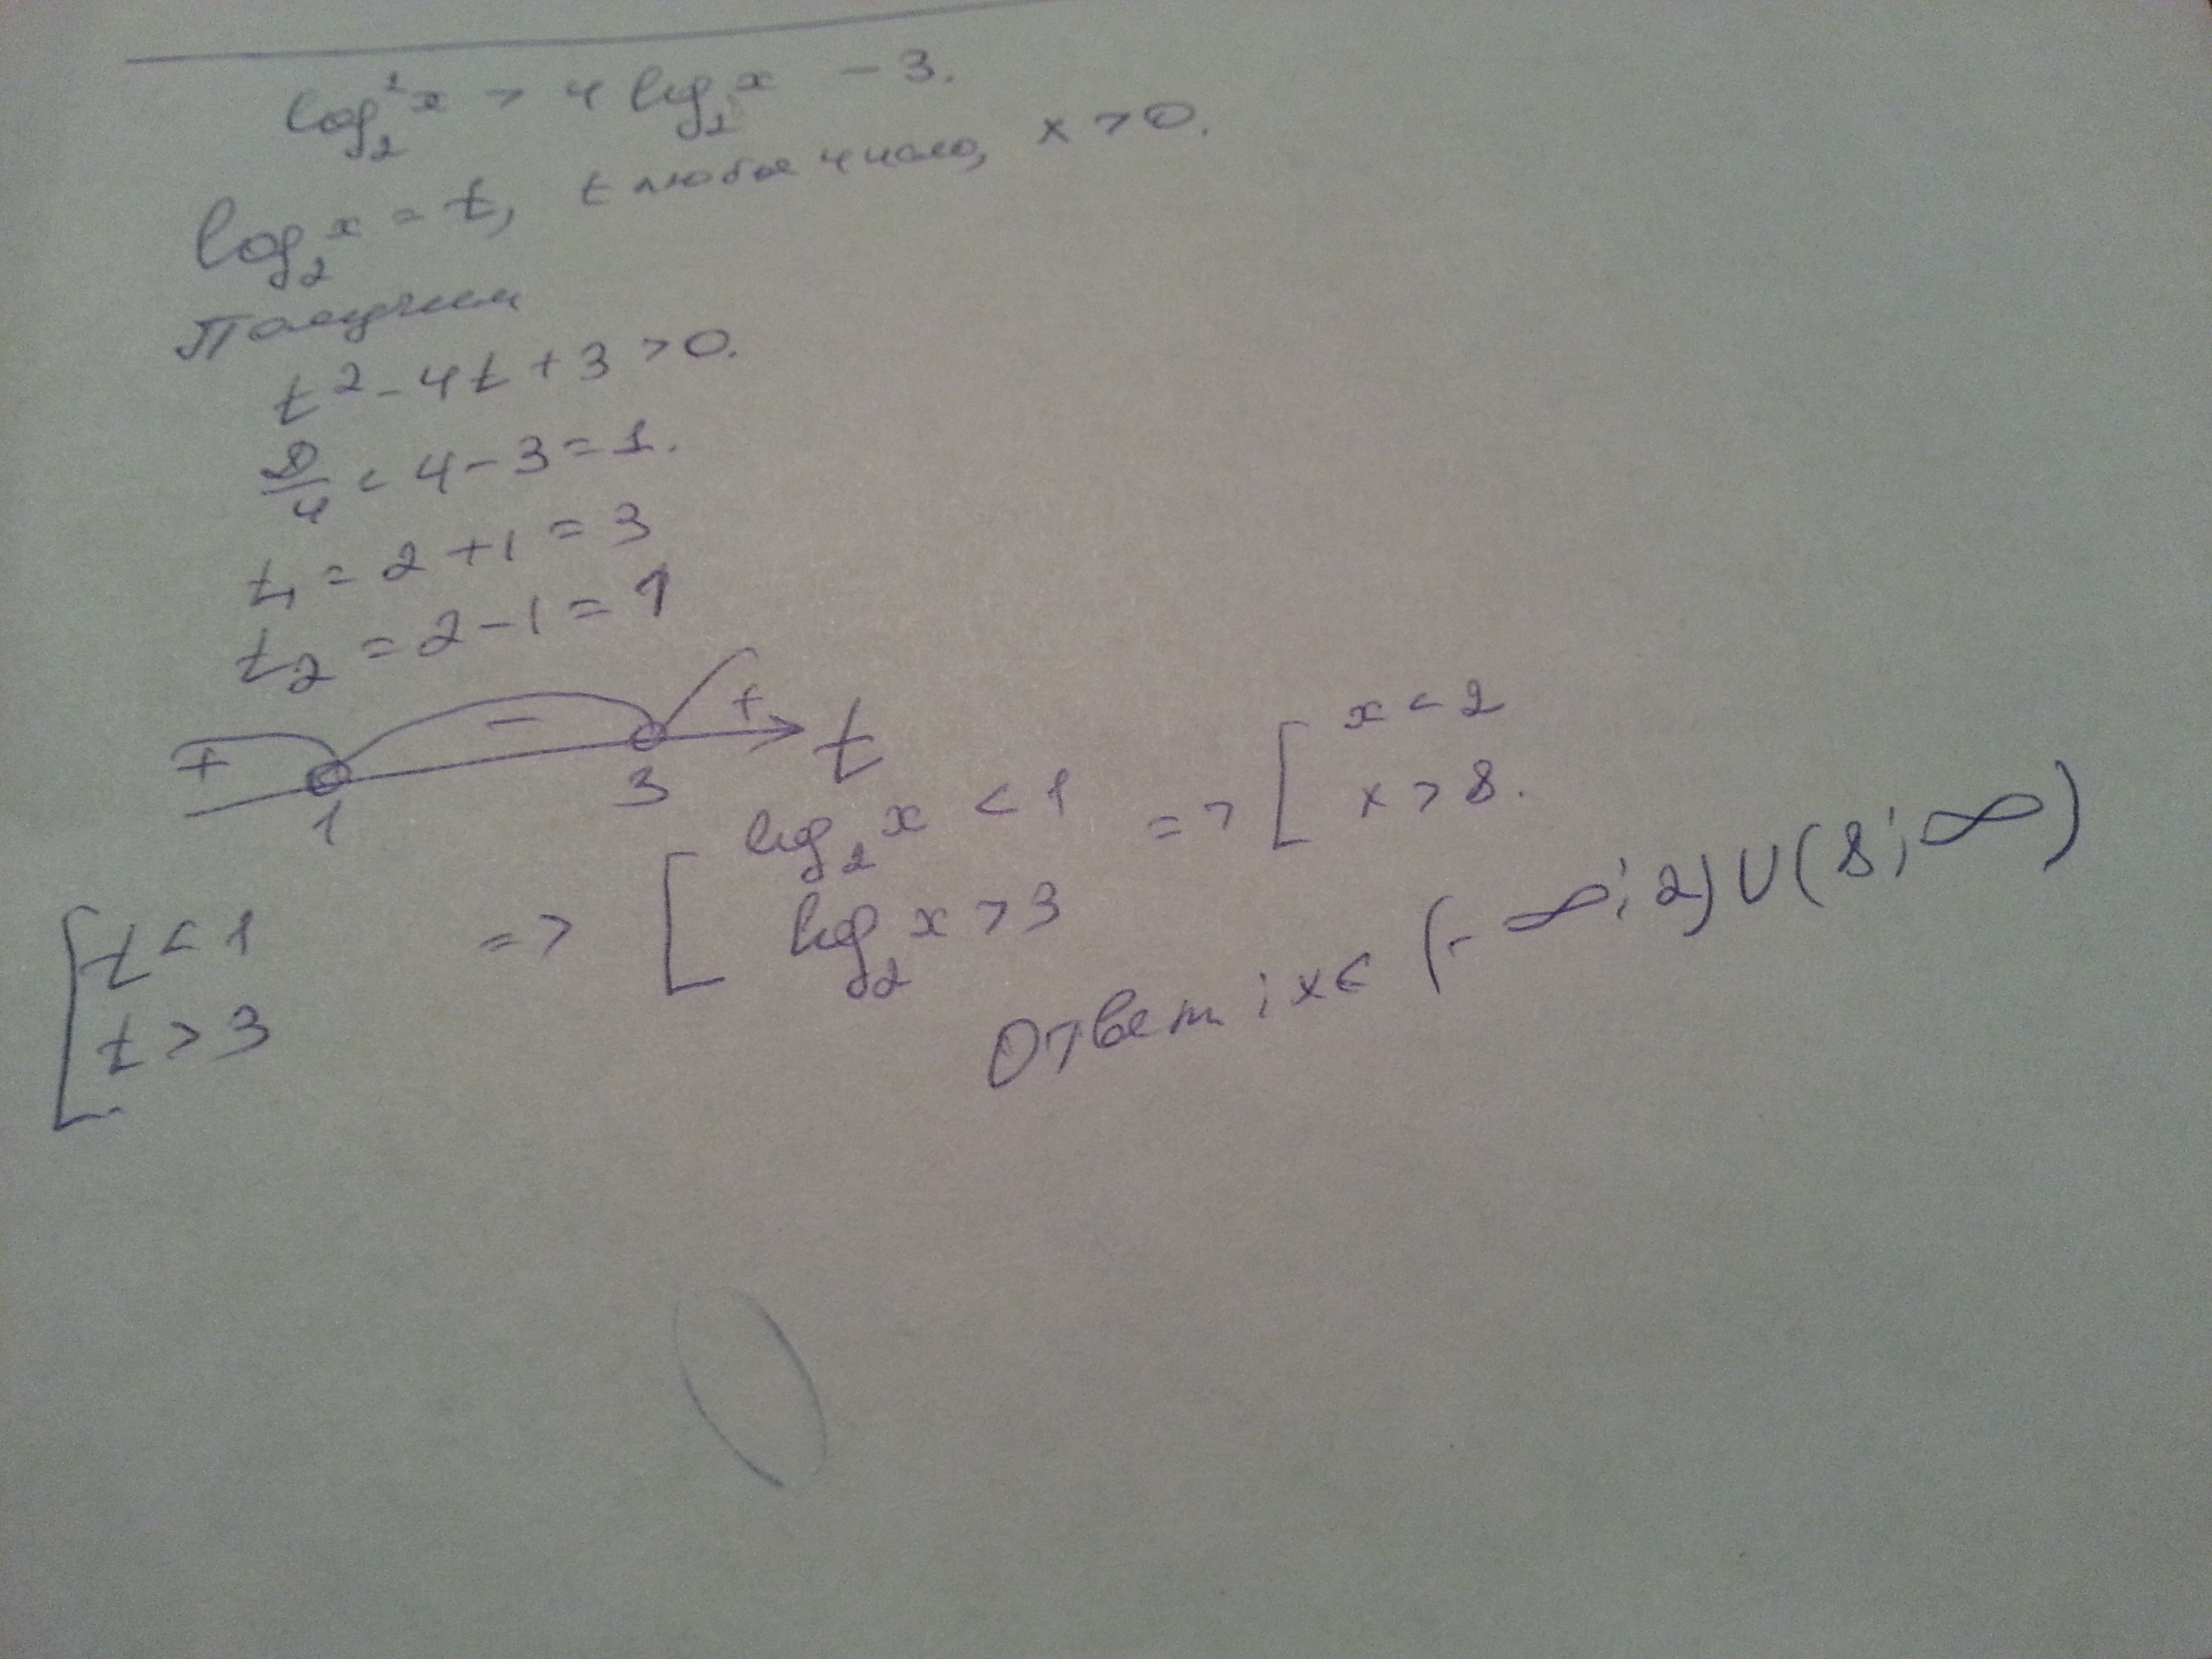 log₂²x > 4 log₂x - 3.
log₂x = t, t любое число, x > 0.
Получим
t² - 4t + 3 > 0.
D/4 = 4 - 3 = 1.
t₁ = 2 + 1 = 3
t₂ = 2 - 1 = 1
+ - + t
1 3
[ t < 1 => [ log₂x < 1 => [ x < 2
t > 3 log₂x > 3 x > 8.
Ответ: x ∈ (-∞; 2) ∪ (8; ∞)